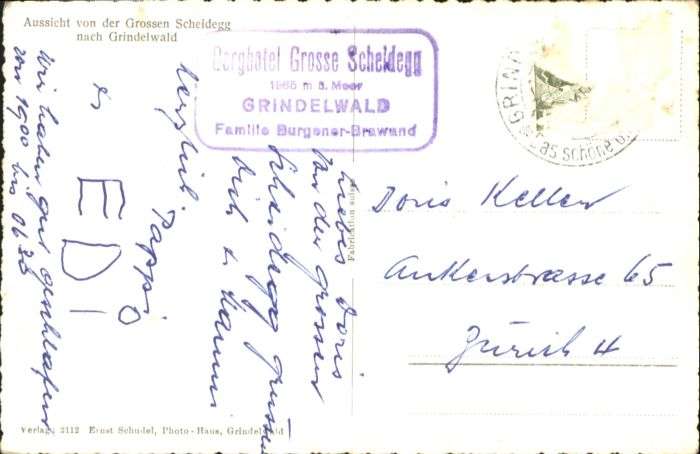 Aussicht von der Grossen Scheidegg
nach Grindelwald
Berghotel Grosse Scheidegg
1965 m ü. Meer
GRINDELWALD
Familie Burgener-Brawand
GRIN
as schöne
Liebes Doris
Von der grossen
Scheidegg grüssen
dich & Mammi
herzlich.
Pappi
&
EDI
Wir haben gut geschlafen
von 1900 bis 0630
Doris Keller
Ankerstrasse 65
Zürich 4
Fabrication suisse
Verlag, 2112 Ernst Schudel, Photo-Haus, Grindelwald